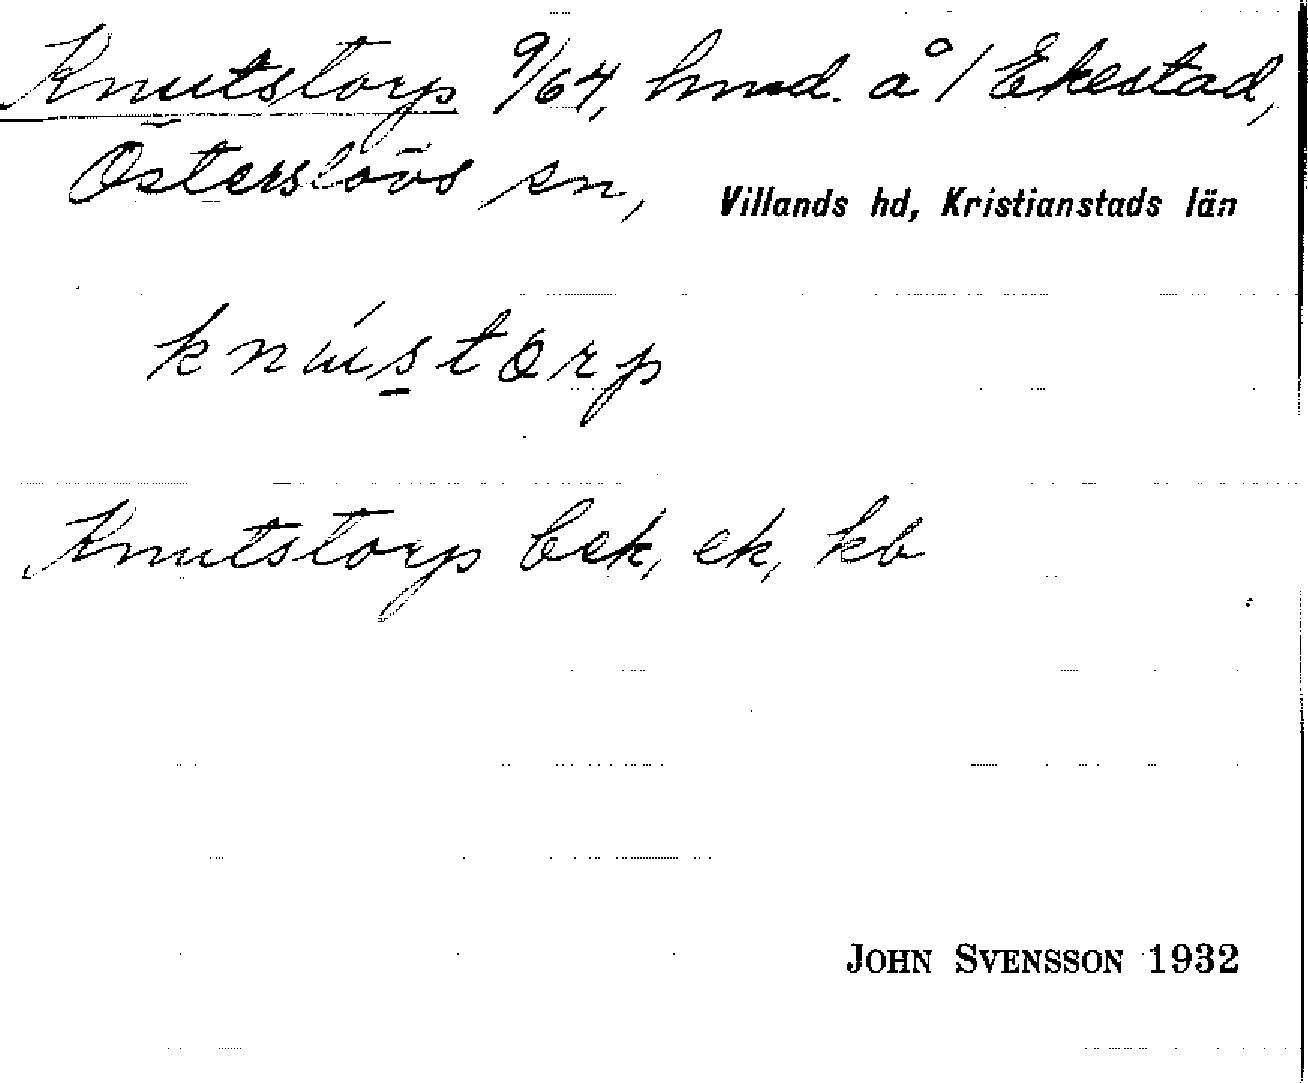 Knutstorp 9/64, hmd. å 1 Ekestad,
Österslövs sn, Villands hd, Kristianstads län
knústorp
Knutstorp bek, ek, kb
JOHN SVENSSON 1932